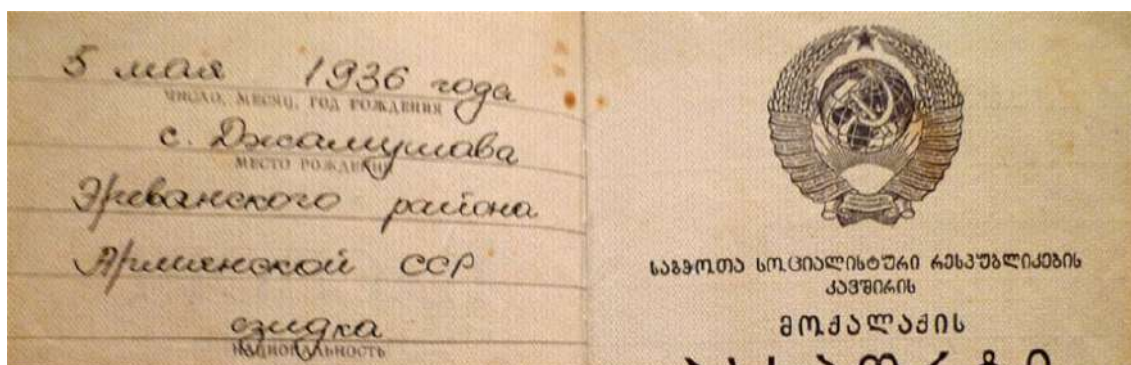 5 мая 1936 года
ЧИСЛО, МЕСЯЦ, ГОД РОЖДЕНИЯ
с. Джамушава
МЕСТО РОЖДЕНИЯ
Эреванского района
Армянской ССР
езидка
НАЦИОНАЛЬНОСТЬ
საბჭოთა სოციალისტური რესპუბლიკების
კავშირის
მოქალაქის
პასპორტი